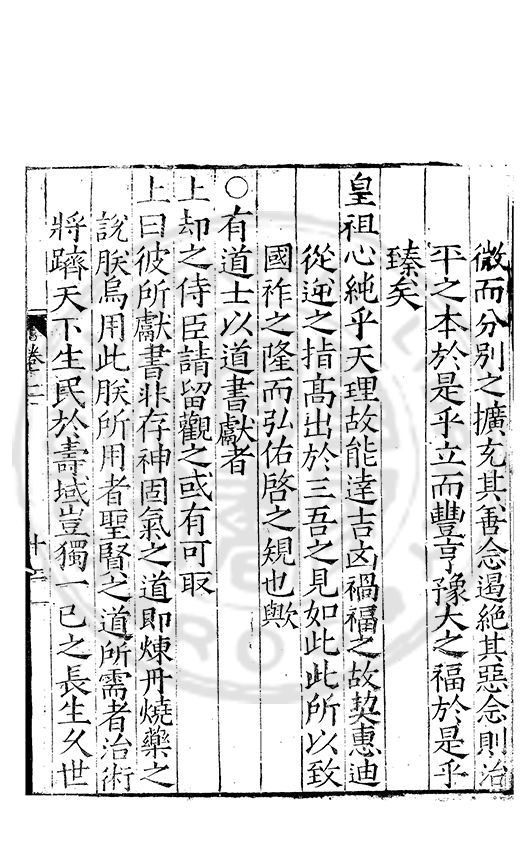 微而分別之擴充其善念遏絕其惡念則治
平之本於是乎立而豐亨豫大之福於是乎
臻矣
皇祖心純乎天理故能達吉凶禍福之故契惠迪
從逆之指高出於三吾之見如此此所以致
國祚之隆而弘佑啓之規也歟
○有道士以道書獻者
上却之侍臣請留觀之或有可取
上曰彼所獻書非存神固氣之道即煉丹燒藥之
說朕烏用此朕所用者聖賢之道所需者治術
將躋天下生民於壽域豈獨一己之長生久世
卷二